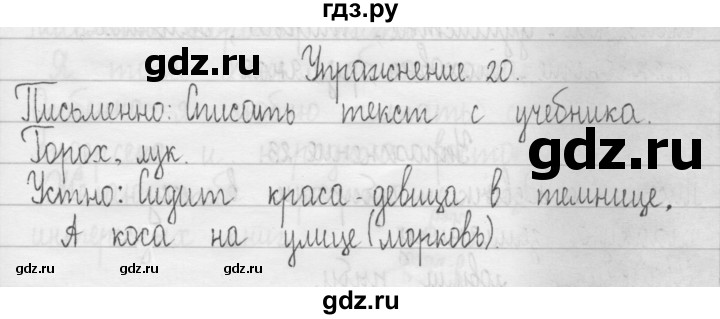 гдз.ру
gdz.ru
Упражнение 20.
Письменно: Списать текст с учебника.
gdz.ru
Горох, лук.
Устно: Сидит краса-девица в темнице,
А коса на улице (морковь).
gdz.ru gdz.ru gdz.ru gdz.ru
gdz.ru